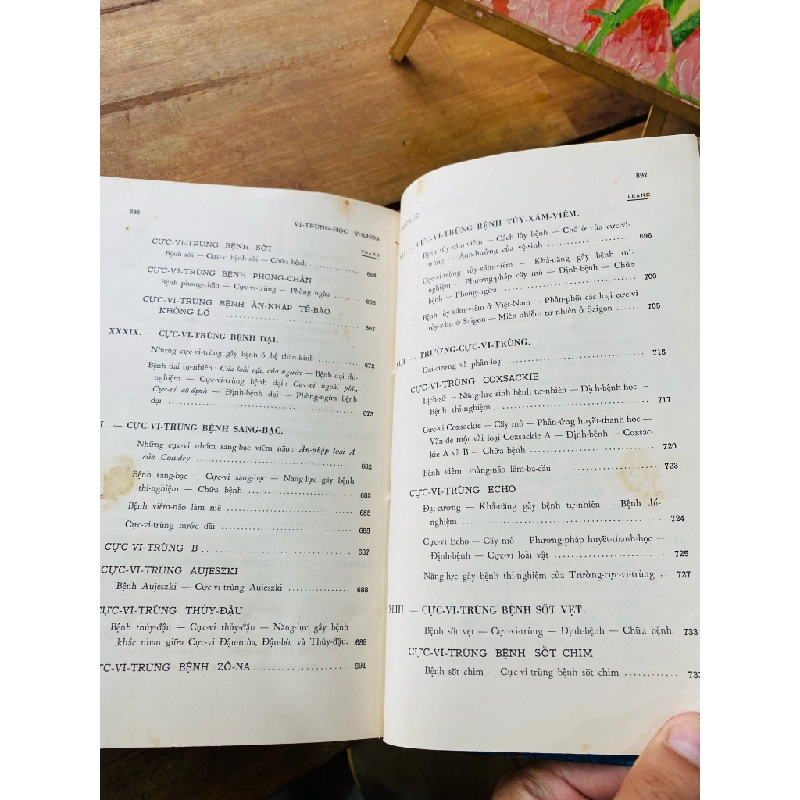 VI-TRÙNG-HỌC Y-KHOA
TRANG
CỰC-VI-TRÙNG BỆNH SỞI
Bệnh sởi — Cực-vi bệnh sởi — Chữa bệnh 664
CỰC-VI-TRÙNG BỆNH PHONG-CHẨN
Bệnh phong-chẩn — Cực-vi-trùng — Phòng ngừa 665
CỰC-VI-TRÙNG BỆNH ÂN-NHẬP TẾ-BÀO
KHỔNG LỒ 667
XXXIX. — CỰC-VI-TRÙNG BỆNH DẠI.
Những cực-vi-trùng gây bệnh ở hệ thần-kinh 672
Bệnh dại tự-nhiên: Của loài vật, của người — Bệnh dại thí-
nghiệm — Cực-vi-trùng bệnh dại: Cực-vi ngoài phố,
Cực-vi cố-định — Định-bệnh dại — Phòng-ngừa bệnh
dại 673
— CỰC-VI-TRÙNG BỆNH SANG-BẠC.
Những cực-vi nhóm sang-bạc viêm não: Ân-nhập loại A
của Cowdry 682
Bệnh sang-bạc — Cực-vi sang-bạc — Năng-lực gây bệnh
thí-nghiệm — Chữa bệnh 682
Bệnh viêm-não làm mê 685
Cực-vi-trùng nước dãi 686
CỰC VI-TRÙNG B 687
CỰC-VI-TRÙNG AUJESZKI
Bệnh Aujeszki — Cực-vi-trùng Aujeszki 688
CỰC-VI-TRÙNG THỦY-ĐẬU
Bệnh thủy-đậu — Cực-vi thủy-đậu — Năng-lực gây bệnh
khác nhau giữa Cực-vi Đậu-mùa, Đậu-bò và Thủy-đậu. 689
CỰC-VI-TRÙNG BỆNH ZÔ-NA 691
897
TRANG
— CỰC-VI-TRÙNG BỆNH TỦY-XÁM-VIÊM.
Bệnh tủy xám viêm — Cách lây bệnh — Chỗ ở của cực-vi-
trùng — Ảnh-hưởng của vệ-sinh 695
Cực-vi-trùng tủy-xám-viêm — Khả-năng gây bệnh thí-
nghiệm — Phương-pháp cấy mô — Định-bệnh — Chữa
bệnh — Phòng-ngừa 700
Bệnh tủy-xám-viêm ở Việt-Nam — Phân-phối các loại cực-vi
tủy-xám ở Saigon — Miễn nhiễm tự nhiên ở Saigon 705
— TRƯỜNG-CỰC-VI-TRÙNG.
Đại-cương về phân-loại 716
CỰC-VI-TRÙNG COXSACKIE
Lịch-sử — Năng-lực sinh bệnh tự-nhiên — Định-bệnh học —
Bệnh thí-nghiệm 717
Cực-vi Coxsackie — Cấy mô — Phản-ứng huyết-thanh-học —
Vấn-đề một vài loại Coxsackie A — Định-bệnh — Coxsac-
kie A và B — Chữa bệnh 720
Bệnh viêm màng-não lâm-ba-cầu 723
CỰC-VI-TRÙNG ECHO
Đại-cương — Khả-năng gây bệnh tự-nhiên — Bệnh thí-
nghiệm 724
Cực-vi Echo — Cấy mô — Phương-pháp huyết-thanh-học —
Định-bệnh — Cực-vi loài vật 725
Năng-lực gây bệnh thí-nghiệm của Trường-cực-vi-trùng 727
XLIII — CỰC-VI-TRÙNG BỆNH SỐT VẸT.
Bệnh sốt vẹt — Cực-vi-trùng — Định-bệnh — Chữa bệnh. 733
CỰC-VI-TRÙNG BỆNH SỐT CHIM
Bệnh sốt chim — Cực-vi-trùng bệnh sốt chim